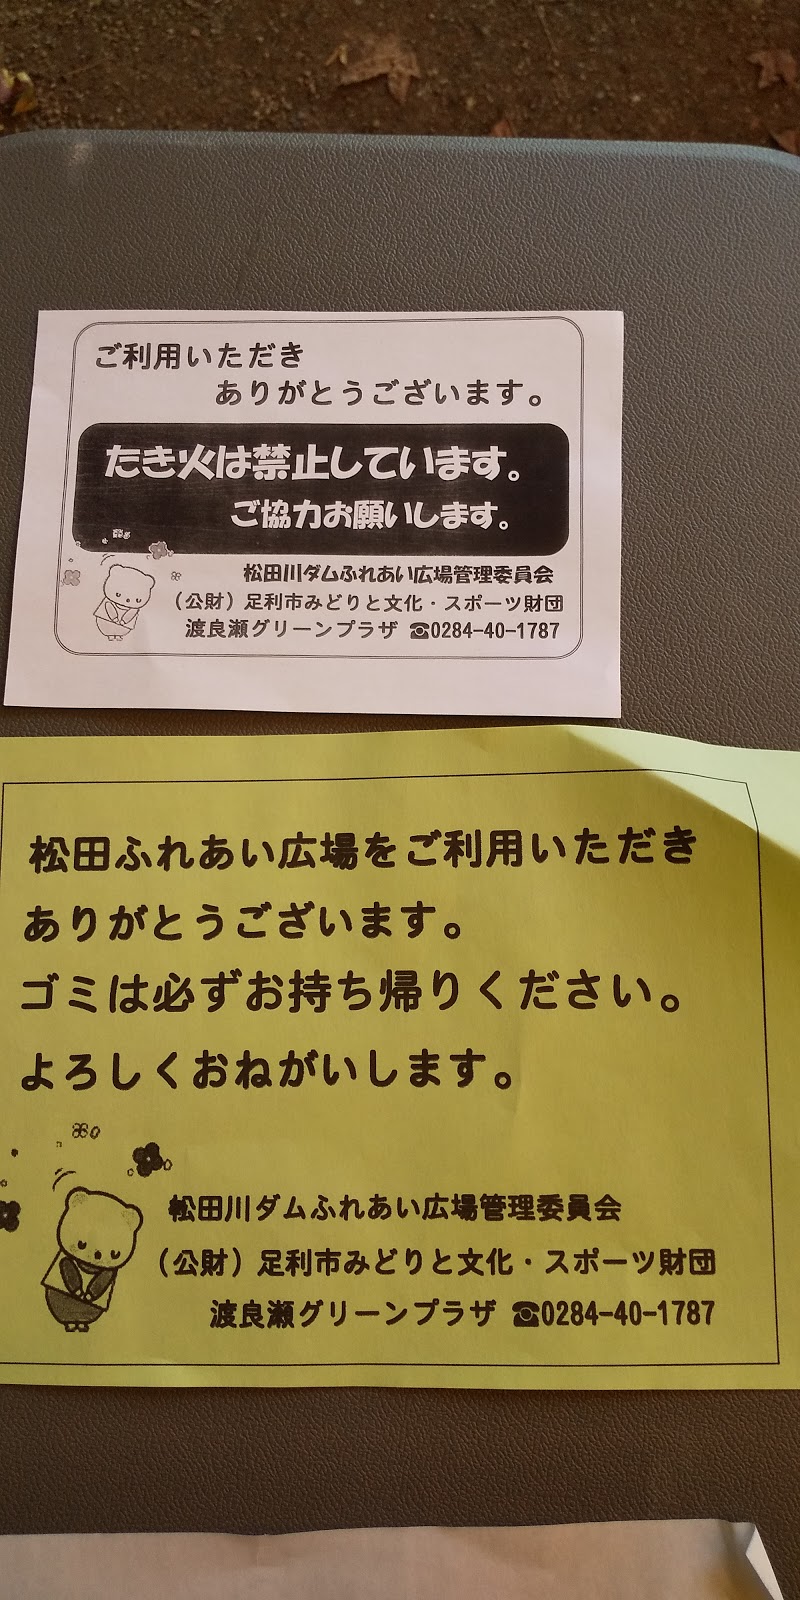 ご利用いただき
ありがとうございます。
たき火は禁止しています。
ご協力お願いします。
松田川ダムふれあい広場管理委員会
（公財）足利市みどりと文化・スポーツ財団
渡良瀬グリーンプラザ ☎0284-40-1787
松田ふれあい広場をご利用いただき
ありがとうございます。
ゴミは必ずお持ち帰りください。
よろしくおねがいします。
松田川ダムふれあい広場管理委員会
（公財）足利市みどりと文化・スポーツ財団
渡良瀬グリーンプラザ ☎0284-40-1787